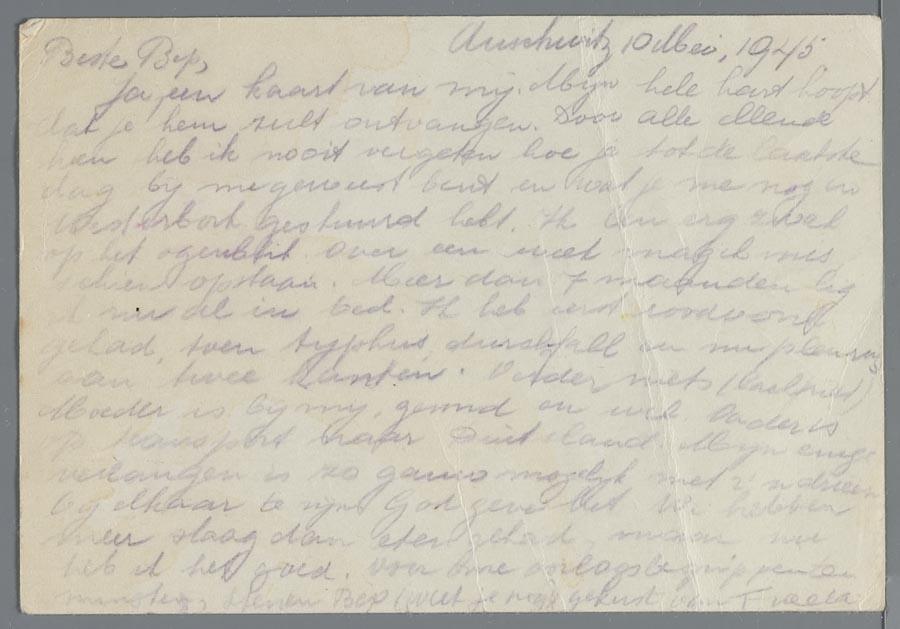 Auschwitz 10 Mei, 1945
Beste Bep,
Ja, een kaart van mij. Mijn hele hart hoopt
dat je hem zult ontvangen. Door alle ellende
heen heb ik nooit vergeten hoe je tot de laatste
dag bij me geweest bent en wat je me nog in
Westerbork gestuurd hebt. Ik ben erg zwak
op het ogenblik. Over een week mag ik mis
schien opstaan. Meer dan 7 maanden lig
ik nu al in bed. Ik heb eerst roodvonk
gehad, toen typhus, durchfall en nu pleuris
aan twee kanten. Verder niets
Moeder is bij mij, gezond en wel. Vader is
op transport naar Duitsland. Mijn enige
verlangen is zo gauw mogelijk met z'n drieën
bij elkaar te zijn. God geve het. We hebben
meer slaag dan eten gehad, maar nu
heb ik het goed. Voor onze oorlogsbegrippen ten
minste, Bep (weet je nog) gekust van